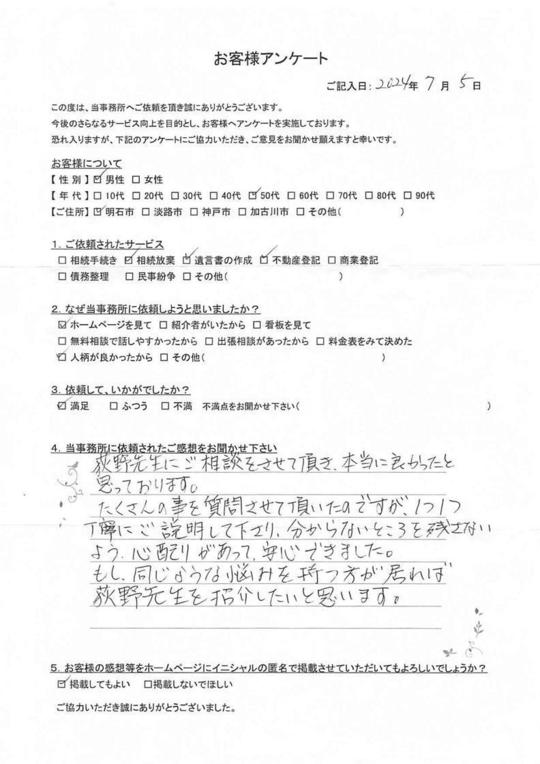 お客様アンケート
ご記入日: 2024年 7月 5日
この度は、当事務所へご依頼を頂き誠にありがとうございます。
今後のさらなるサービス向上を目的とし、お客様へアンケートを実施しております。
恐れ入りますが、下記のアンケートにご協力いただき、ご意見をお聞かせ願えますと幸いです。
お客様について
【性別】☑男性 □女性
【年代】□10代 □20代 □30代 □40代 ☑50代 □60代 □70代 □80代 □90代
【ご住所】☑明石市 □淡路市 □神戸市 □加古川市 □その他( )
1. ご依頼されたサービス
□相続手続き ☑相続放棄 ☑遺言書の作成 ☑不動産登記 □商業登記
□債務整理 □民事紛争 □その他( )
2. なぜ当事務所に依頼しようと思いましたか?
☑ホームページを見て □紹介者がいたから □看板を見て
□無料相談で話しやすかったから □出張相談があったから □料金表をみて決めた
☑人柄が良かったから □その他( )
3. 依頼して、いかがでしたか?
☑満足 □ふつう □不満 不満点をお聞かせ下さい( )
4. 当事務所に依頼されたご感想をお聞かせ下さい
荻野先生にご相談をさせて頂き、本当に良かったと
思っております。
たくさんの事を質問させて頂いたのですが、1つ1つ
丁寧にご説明して下さり、分からないところを残さない
よう、心配りがあって、安心できました。
もし、同じような悩みを持つ方が居れば
荻野先生を紹介したいと思います。
5. お客様の感想等をホームページにイニシャルの匿名で掲載させていただいてもよろしいでしょうか?
☑掲載してもよい □掲載しないでほしい
ご協力いただき誠にありがとうございました。